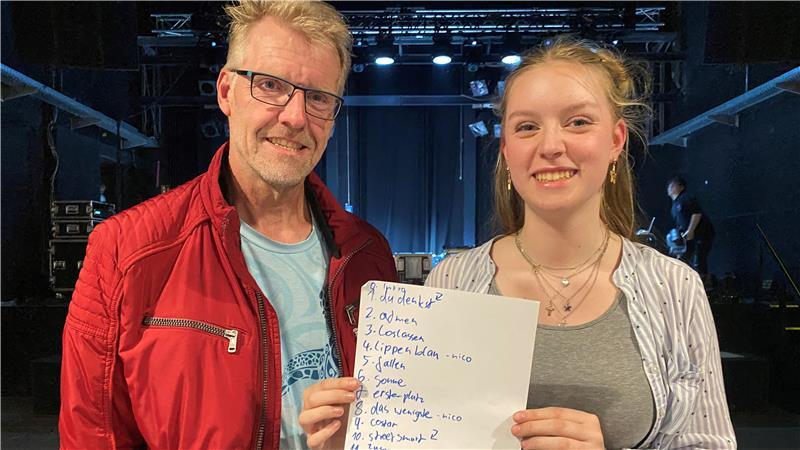 0. intro
1. du denkst Z
2. atmen
3. Loslassen
4. Lippenblau - nico
5. fallen
6. Sonne
7. erster platz
8. das wenigste - nico
9. costar
10. streetsmart Z